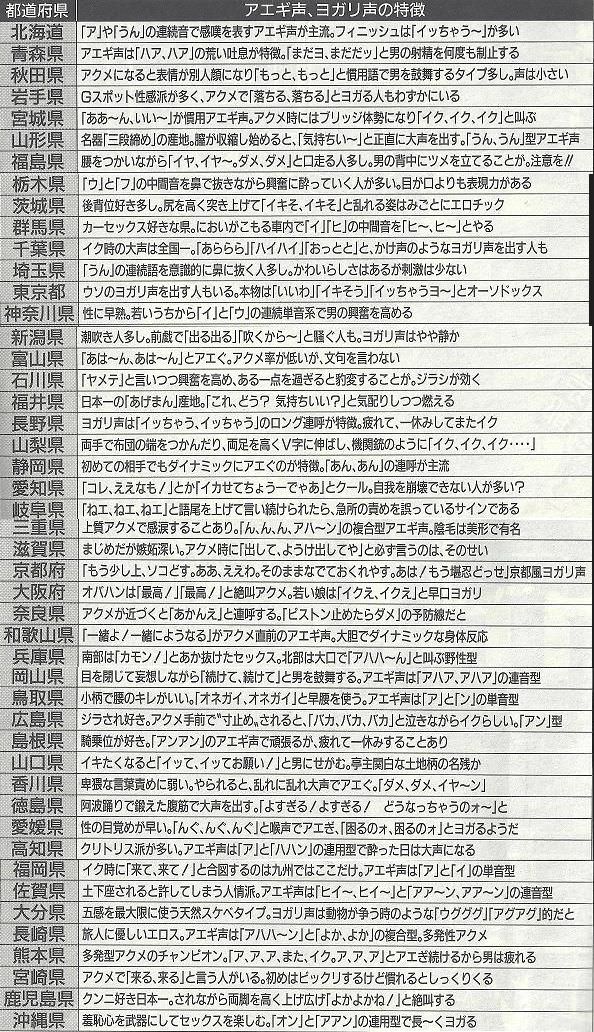 都道府県 アエギ声、ヨガリ声の特徴
北海道 「ア」や「うん」の連続音で感嘆を表すアエギ声が主流。フィニッシュは「イッちゃう〜」が多い
青森県 アエギ声は「ハア、ハア」の荒い吐息が特徴。「まだヨ、まだだッ」と男の射精を何度も制止する
秋田県 アクメになると表情が別人顔になり「もっと、もっと」と慣用語で男を鼓舞するタイプ多し。声は小さい
岩手県 Gスポット性感派が多く、アクメで「落ちる、落ちる」とヨガる人もわずかにいる
宮城県 「ああ〜ん、いい〜」が慣用アエギ声。アクメ時にはブリッジ体勢になり「イク、イク、イク」と叫ぶ
山形県 名器「三段締め」の産地。膣が収縮し始めると、「気持ちい〜」と正直に大声を出す。「うん、うん」型アエギ声
福島県 腰をつかいながら「イヤ、イヤ〜。ダメ、ダメ」と口走る人多し。男の背中にツメを立てることが。注意を!!
栃木県 「ウ」と「フ」の中間音を鼻で抜きながら興奮に酔っていく人が多い。目が口よりも表現力がある
茨城県 後背位好き多し。尻を高く突き上げて「イキそ、イキそ」と乱れる姿はみごとにエロチック
群馬県 カーセックス好きな県。においがこもる車内で「イ」「ヒ」の中間音を「ヒ〜、ヒ〜」とやる
千葉県 イク時の大声は全国一。「あららら」「ハイハイ」「おっとと」と、かけ声のようなヨガリ声を出す人も
埼玉県 「うん」の連続語を意識的に鼻に抜く人多し。かわいらしさはあるが刺激は少ない
東京都 ウソのヨガリ声を出す人もいる。本物は「いいわ」「イキそう」「イッちゃうヨ〜」とオーソドックス
神奈川県 性に早熟。若いうちから「イ」と「ウ」の連続単音系で男の興奮を高める
新潟県 潮吹き人多し。前戯で「出る出る」「吹くから〜」と騒ぐ人も。ヨガリ声はやや静か
富山県 「あは〜ん、あは〜ん」とアエぐ。アクメ率が低いが、文句を言わない
石川県 「ヤメテ」と言いつつ興奮を高め、ある一点を過ぎると豹変することが。ジラシが効く
福井県 日本一の「あげまん」産地。「これ、どう? 気持ちいい?」と気配りしつつ燃える
長野県 ヨガリ声は「イッちゃう、イッちゃう」のロング連呼が特徴。疲れて、一休みしてまたイク
山梨県 両手で布団の端をつかんだり、両足を高くV字に伸ばし、機関銃のように「イク、イク、イク‥‥」
静岡県 初めての相手でもダイナミックにアエぐのが特徴。「あん、あん」の連呼が主流
愛知県 「コレ、ええなも!」とか「イカせてちょうーでゃあ」とクール。自我を崩壊できない人が多い?
岐阜県 「ねエ、ねエ、ねエ」と語尾を上げて言い続けられたら、急所の責めを誤っているサインである
三重県 上質アクメで感涙することあり。「ん、ん、ん、アハ〜ン」の複合型アエギ声。陰毛は美形で有名
滋賀県 まじめだが嫉妬深い。アクメ時に「出して、ようけ出してや」と必ず言うのは、そのせい
京都府 「もう少し上、ソコどす。ああ、ええわ。そのままなでておくれやす。あは!もう堪忍どっせ」京都風ヨガリ声
大阪府 オバハンは「最高!」「最高!」と絶叫アクメ。若い娘は「イクえ、イクえ」と早口ヨガリ
奈良県 アクメが近づくと「あかんえ」と連呼する。「ピストン止めたらダメ」の予防線だと
和歌山県 「一緒よ!一緒にようなる」がアクメ直前のアエギ声。大胆でダイナミックな身体反応
兵庫県 南部は「カモン!」とあか抜けたセックス。北部は大口で「アハハ〜ん」と叫ぶ野性型
岡山県 目を閉じて妄想しながら「続けて、続けて」と男を鼓舞する。アエギ声は「アハア、アハア」の連音型
鳥取県 小柄で腰のキレがいい。「オネガイ、オネガイ」と早腰を使う。アエギ声は「ア」と「ン」の単音型
広島県 ジラされ好き。アクメ手前で〝寸止め〟されると、「バカ、バカ、バカ」と泣きながらイクらしい。「アン」型
島根県 騎乗位が好き。「アンアン」のアエギ声で頑張るが、疲れて一休みすることあり
山口県 イキたくなると「イッて、イッてお願い!」と男にせがむ。亭主関白な土地柄の名残か
香川県 卑猥な言葉責めに弱い。やられると、乱れに乱れ大声でアエぐ。「ダメ、ダメ、イヤ〜ン」
徳島県 阿波踊りで鍛えた腹筋で大声を出す。「よすぎる!よすぎる! どうなっちゃうのォ〜」と
愛媛県 性の目覚めが早い。「んぐ、んぐ、んぐ」と喉声でアエぎ、「困るのォ、困るのォ」とヨガるようだ
高知県 クリトリス派が多い。アエギ声は「ア」と「ハハン」の連用型で酔った日は大声になる
福岡県 イク時に「来て、来て!」と合図するのは九州ではここだけ。アエギ声は「ア」と「イ」の単音型
佐賀県 土下座されると許してしまう人情派。アエギ声は「ヒイ〜、ヒイ〜」と「アア〜ン、アア〜ン」の連音型
大分県 五感を最大限に使う天然スケベタイプ。ヨガリ声は動物が争う時のような「ウグググ」「アグアグ」的だと
長崎県 旅人に優しいエロス。アエギ声は「アハハ〜ン」と「よか、よか」の複合型。多発性アクメ
熊本県 多発型アクメのチャンピオン。「ア、ア、ア、また、イク。ア、ア、ア」とアエぎ続けるから男は疲れる
宮崎県 アクメで「来る、来る」と言う人がいる。初めはビックリするけど慣れるとしっくりくる
鹿児島県 クンニ好き日本一。されながら両脚を高く上げ広げ「よかよかね!」と絶叫する
沖縄県 羞恥心を武器にしてセックスを楽しむ。「オン」と「アアン」の連用型で長〜くヨガる